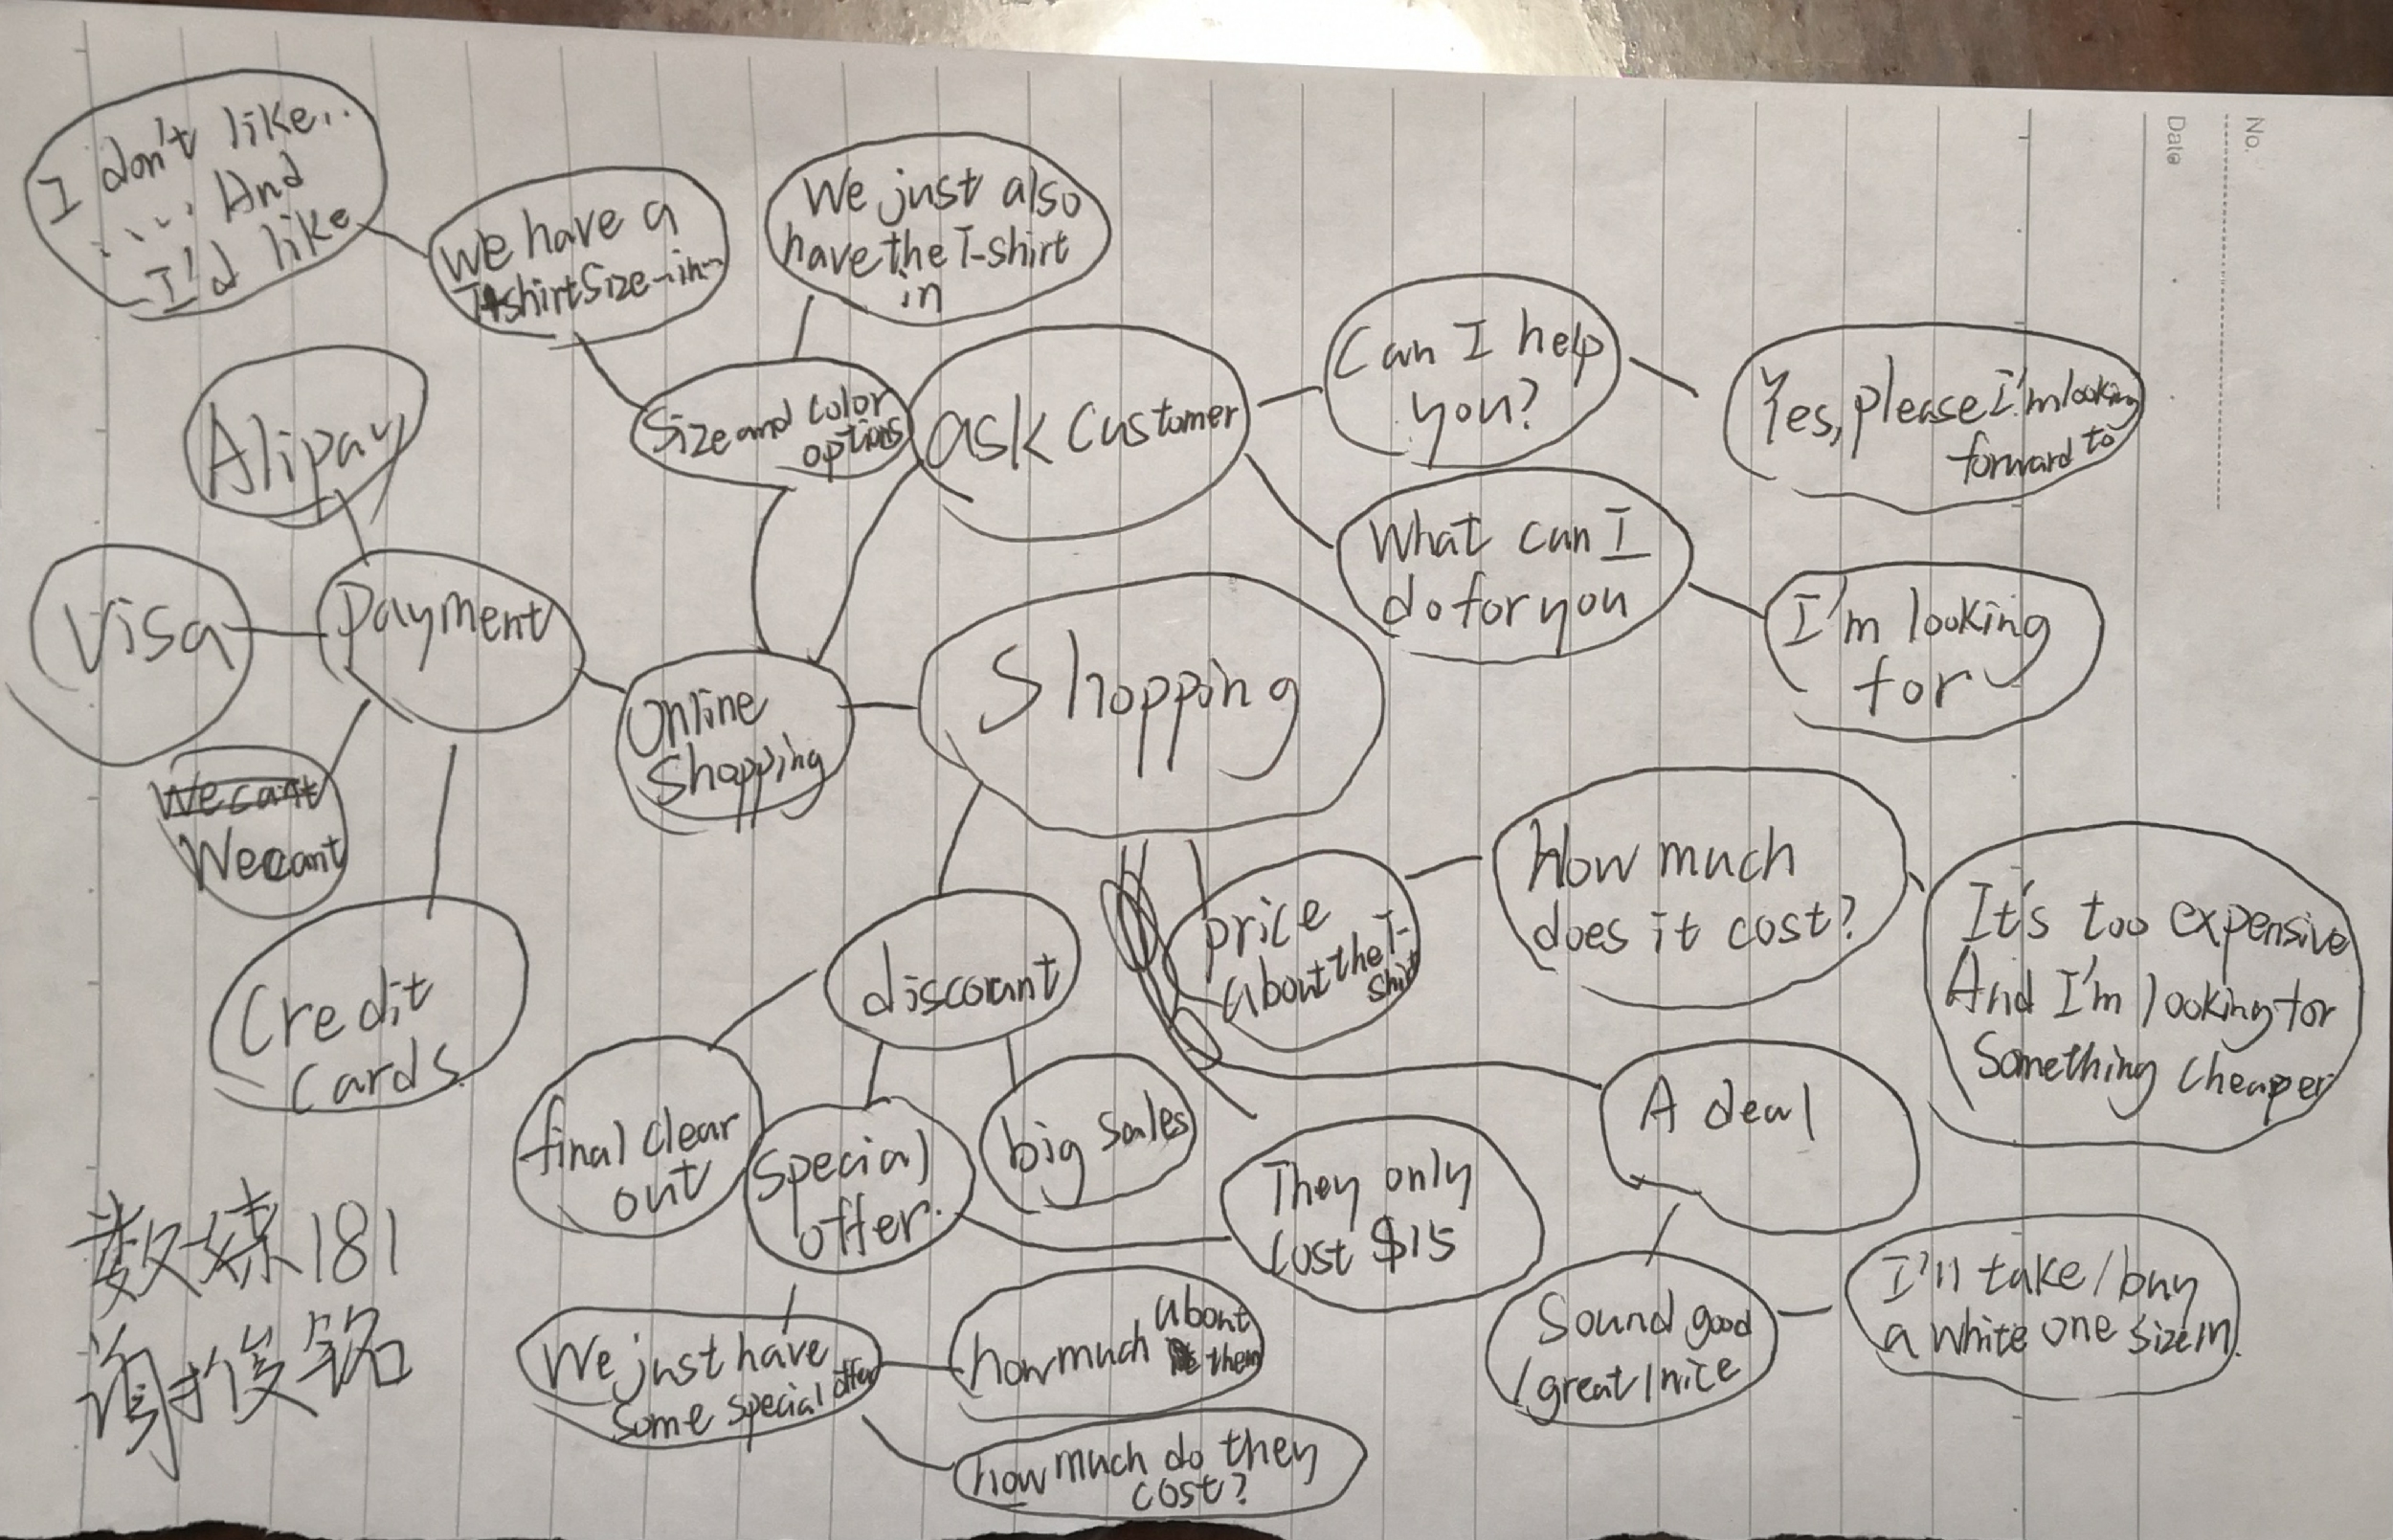 No.
Date
I don't like..
.... And
I'd like
We have a
T-shirt Size-in-
We just also
have the T-shirt
in
Size and color
options
ask Customer
Can I help
you?
Yes, please I'm looking
forward to
What can I
do for you
I'm looking
for
Alipay
Visa
Payment
Wecant
Wecant
Credit
Cards
Online
Shopping
Shopping
discount
final clear
out
special
offer.
big sales
price
about the T-
shirt
How much
does it cost?
It's too expensive
And I'm looking for
Something cheaper
A deal
They only
cost $15
Sound good
/great/nice
I'll take/buy
a white one size in
We just have
some special offer
how much about
them
how much do they
cost?
数媒181